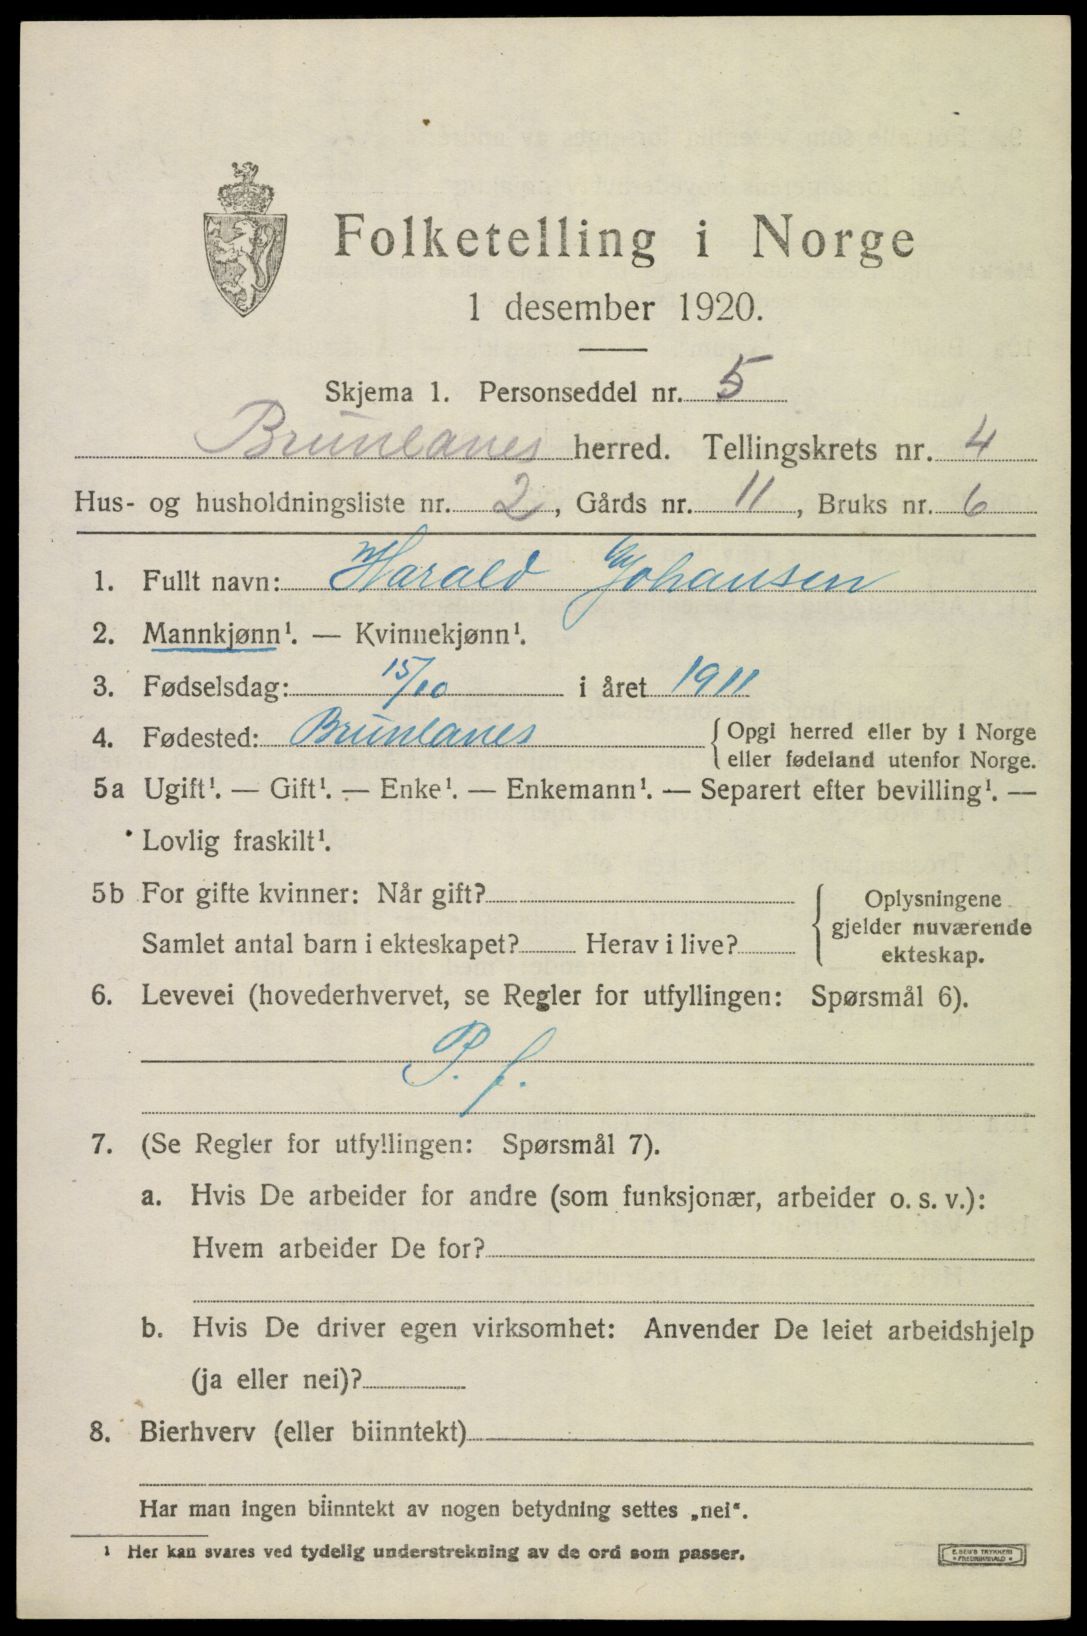 Folketelling i Norge
1 desember 1920.
Skjema 1. Personseddel nr. 5
Brunlanes herred. Tellingskrets nr. 4
Hus- og husholdningsliste nr. 2, Gårds nr. 11, Bruks nr. 6
1. Fullt navn: Harald Johansen
2. Mannkjønn¹. — Kvinnekjønn¹.
3. Fødselsdag: 15/10 i året 1911
4. Fødested: Brunlanes { Opgi herred eller by i Norge
eller fødeland utenfor Norge.
5a Ugift¹. — Gift¹. — Enke¹. — Enkemann¹. — Separert efter bevilling¹. —
Lovlig fraskilt¹.
5b For gifte kvinner: Når gift?
Samlet antal barn i ekteskapet? Herav i live?
{ Oplysningene
gjelder nuværende
ekteskap.
6. Levevei (hovederhvervet, se Regler for utfyllingen: Spørsmål 6).
P. f.
7. (Se Regler for utfyllingen: Spørsmål 7).
a. Hvis De arbeider for andre (som funksjonær, arbeider o. s. v.):
Hvem arbeider De for?
b. Hvis De driver egen virksomhet: Anvender De leiet arbeidshjelp
(ja eller nei)?
8. Bierhverv (eller biinntekt)
Har man ingen biinntekt av nogen betydning settes „nei“.
¹ Her kan svares ved tydelig understrekning av de ord som passer.
TRYKKERI